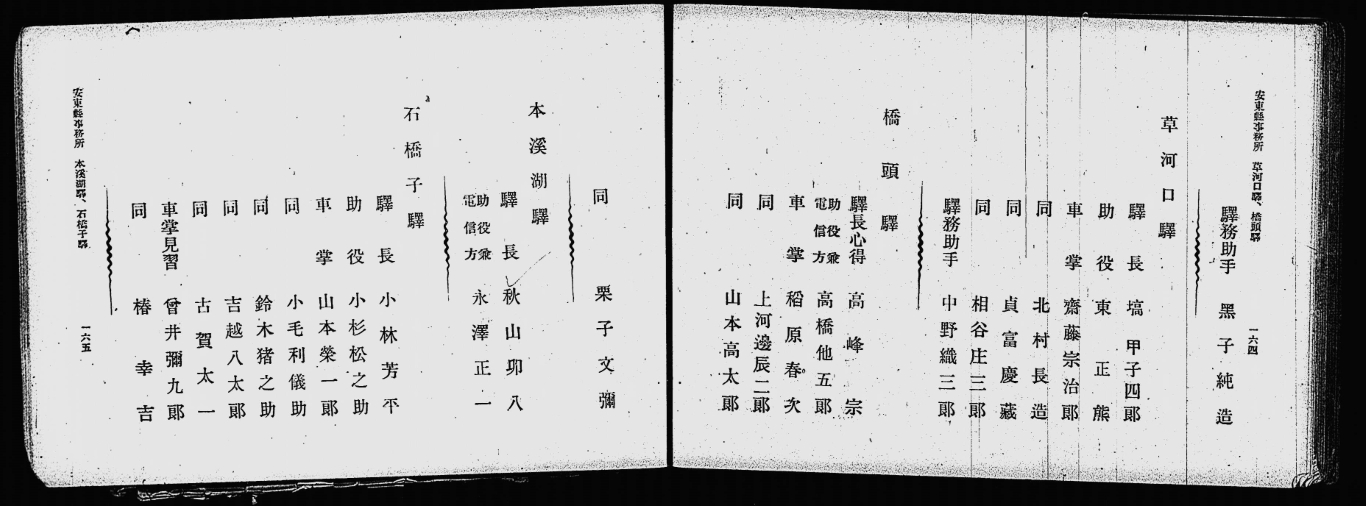 安東縣事務所　草河口驛、橋頭驛
一六四
驛務助手　黑子純造
草河口驛
驛長　塙甲子四郎
助役　東正熊
車掌　齋藤宗治郎
同　北村長造
同　貞富慶藏
同　相谷庄三郎
驛務助手　中野織三郎
橋頭驛
驛長心得　高峰宗
助役兼電信方　高橋他五郎
車掌　稻原春次
同　上河邊辰二郎
同　山本高太郎
同　栗子文彌
本溪湖驛
驛長　秋山卯八
助役兼電信方　永澤正一
石橋子驛
驛長　小林芳平
助役　小杉松之助
車掌　山本榮一郎
同　小毛利儀助
同　鈴木猪之助
同　吉越八太郎
同　古賀太一
車掌見習　曾井彌九郎
同　椿幸吉
安東縣事務所　本溪湖驛、石橋子驛
一六五